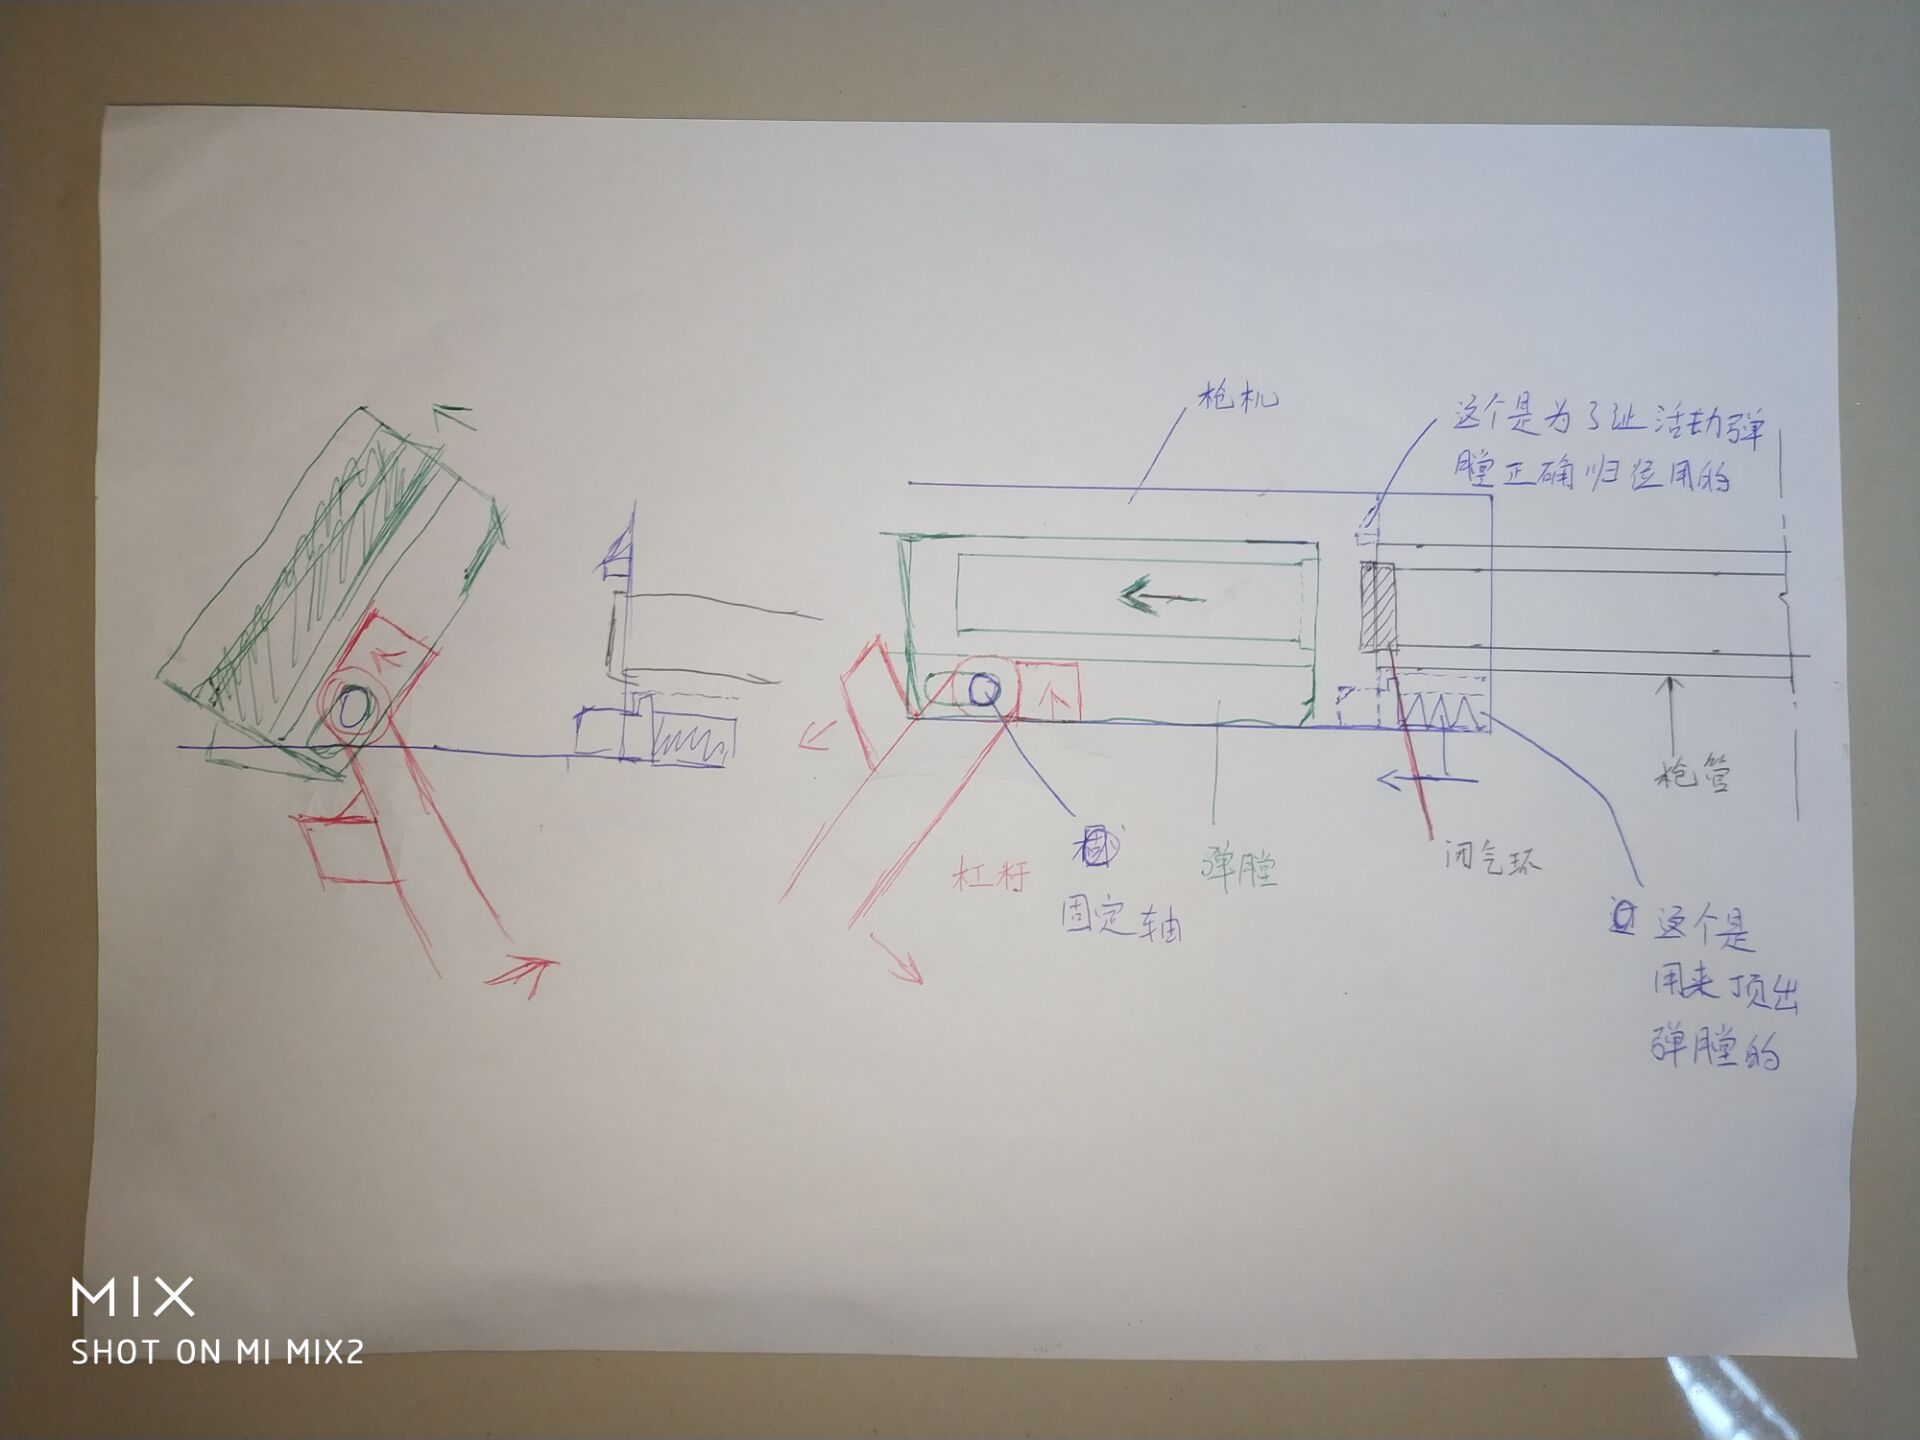 枪机
这个是为了让活动弹
膛正确归位用的
枪管
闭气环
弹膛
杠杆
固定轴
这个是
用来顶出
弹膛的
MIX
SHOT ON MI MIX2